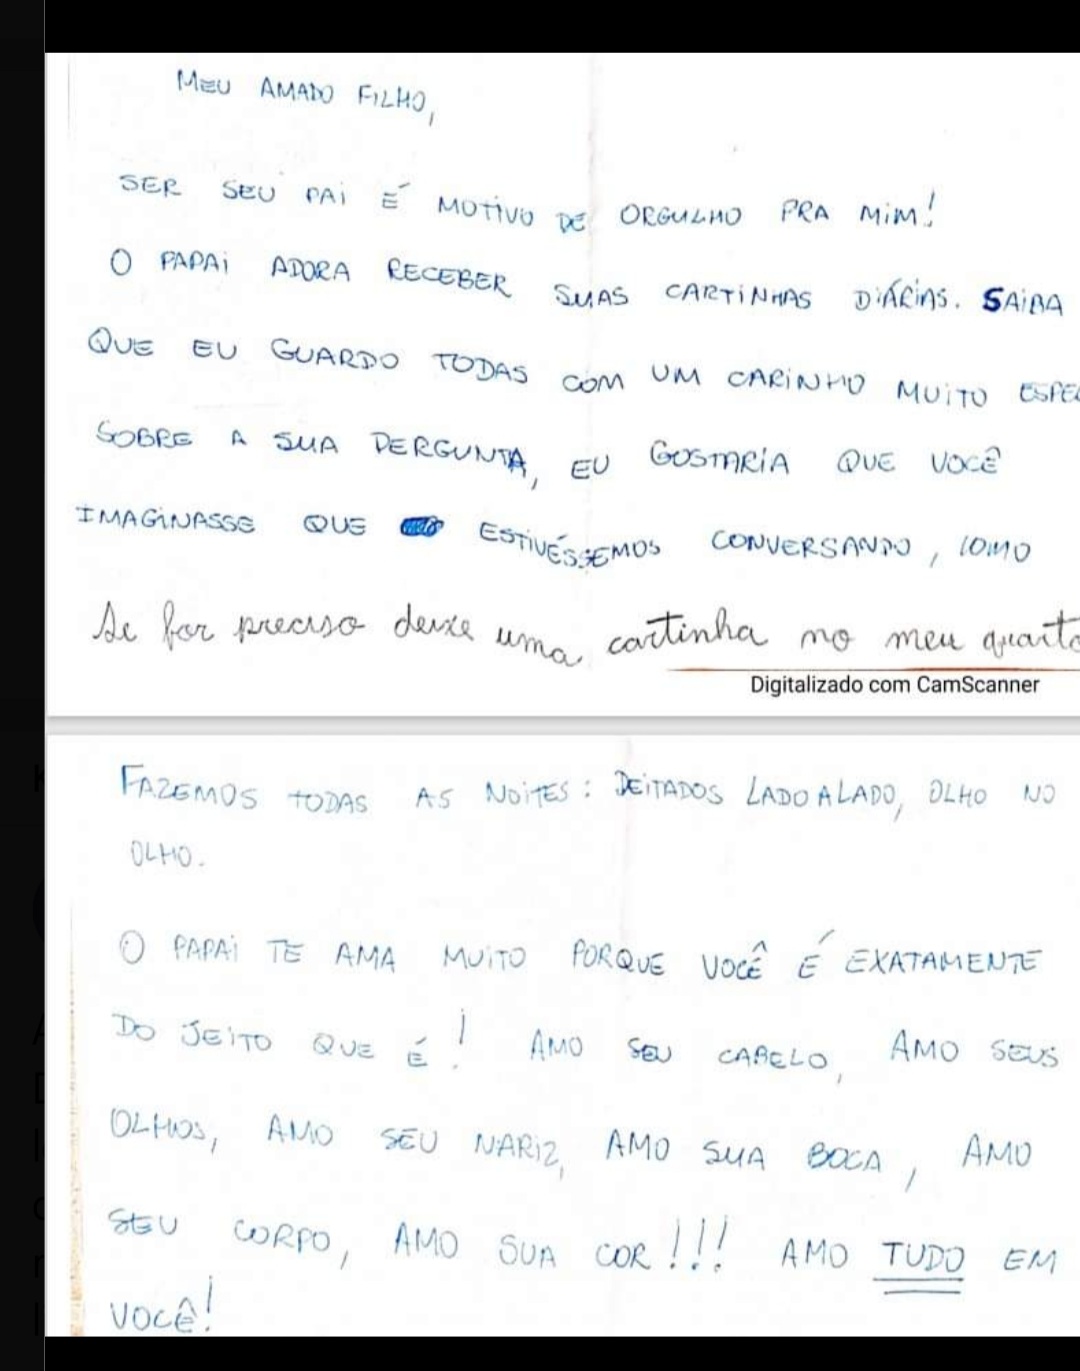 MEU AMADO FILHO,
SER SEU PAI É MOTIVO DE ORGULHO PRA MIM!
O PAPAI ADORA RECEBER SUAS CARTINHAS DIÁRIAS. SAIBA
QUE EU GUARDO TODAS COM UM CARINHO MUITO ESPEC
SOBRE A SUA PERGUNTA, EU GOSTARIA QUE VOCÊ
IMAGINASSE QUE ESTIVÉSSEMOS CONVERSANDO, COMO
Se for preciso deixe uma cartinha no meu quarto
Digitalizado com CamScanner
FAZEMOS TODAS AS NOITES: DEITADOS LADO A LADO, OLHO NO
OLHO.
O PAPAI TE AMA MUITO PORQUE VOCÊ É EXATAMENTE
DO JEITO QUE É! AMO SEU CABELO, AMO SEUS
OLHOS, AMO SEU NARIZ, AMO SUA BOCA, AMO
SEU CORPO, AMO SUA COR!!! AMO TUDO EM
VOCÊ!